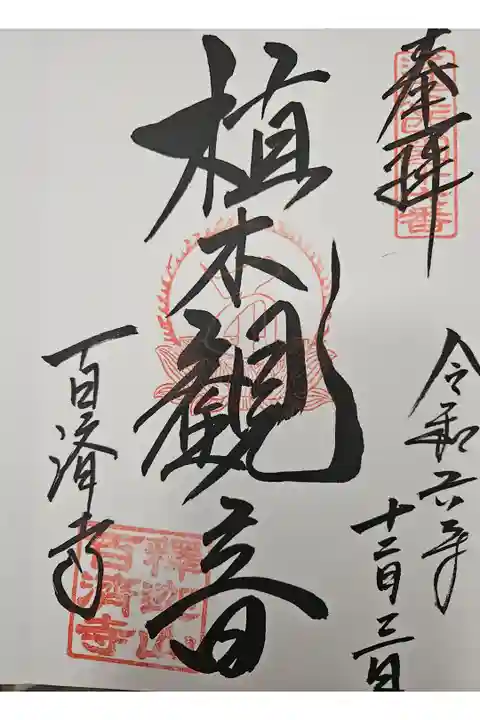 奉拝
令和六年
十二月三日
植木観音
百済寺
釈迦山
百済寺